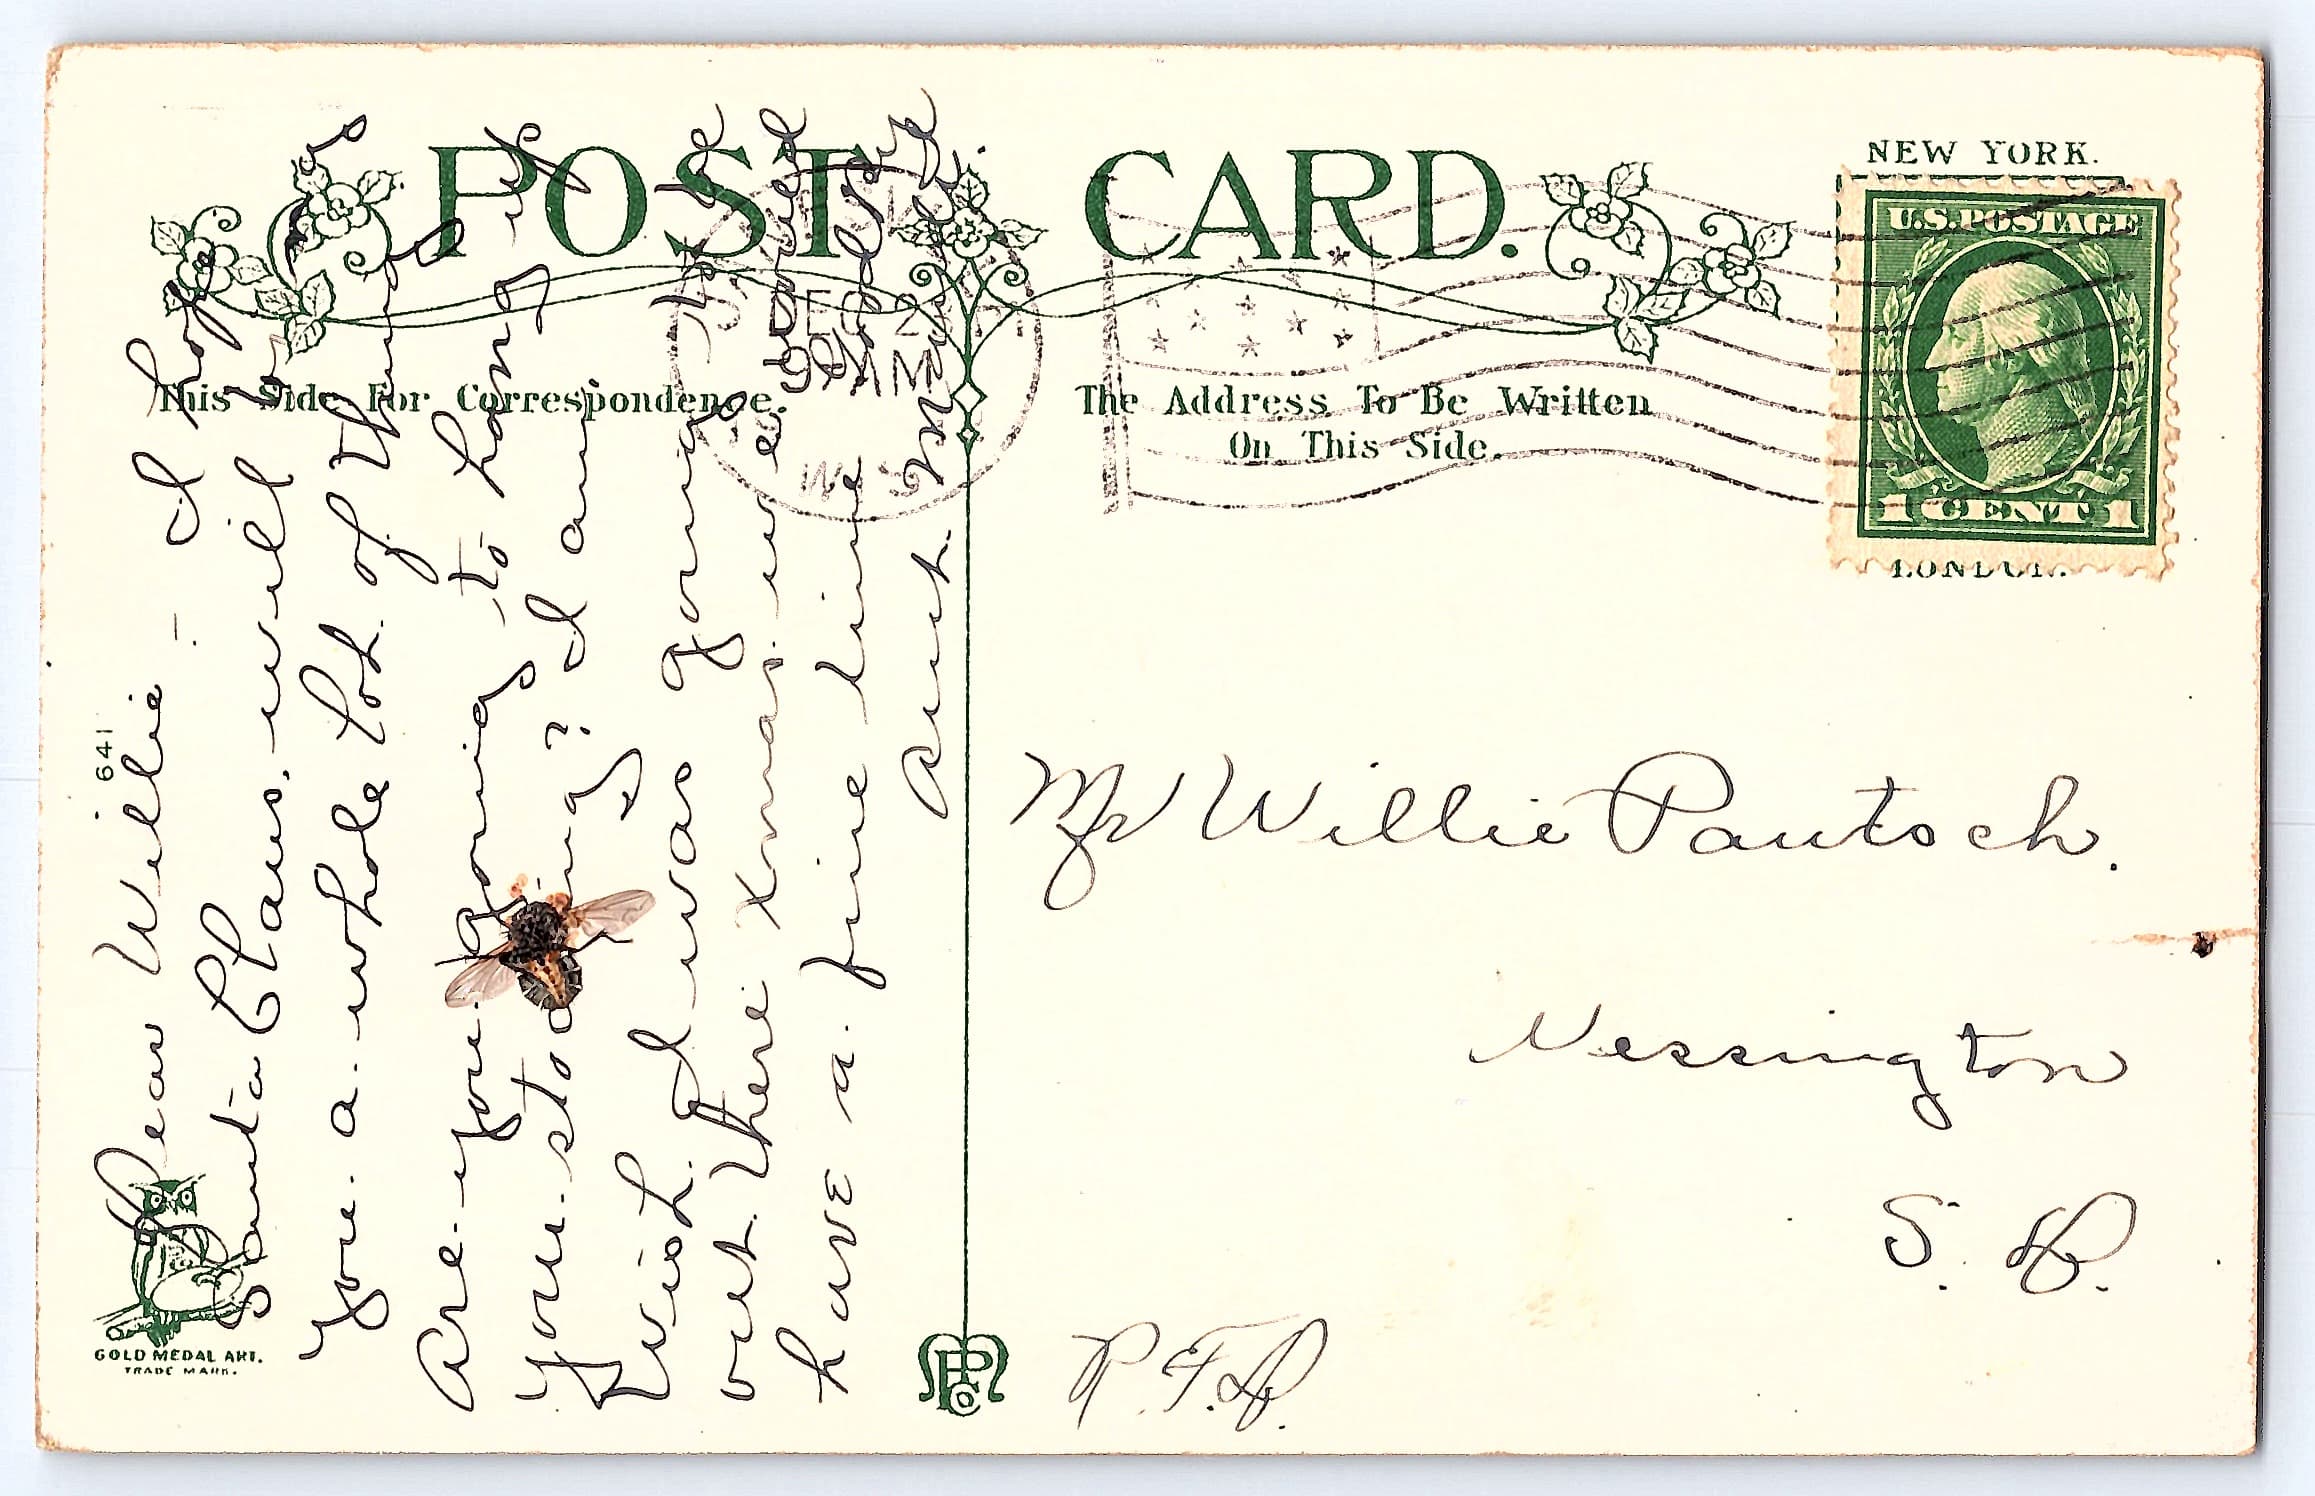 POST CARD.
This Side For Correspondence.
The Address To Be Written
On This Side.
NEW YORK.
U.S. POSTAGE
1 CENT 1
LONDON.
DEC 2
9 AM
WIS
641
Dear Willie - I hope
Santa Claus. will bring
you. a. whole lot. of things
are you. going to hang up
your. stocking? I am.
Wish. I was going to be
out. there xmas. we would
have a. fine time
Aunt.
Mr Willie Pautsch.
Wessington
S. D.
R. F. D.
GOLD MEDAL ART.
TRADE MARK.